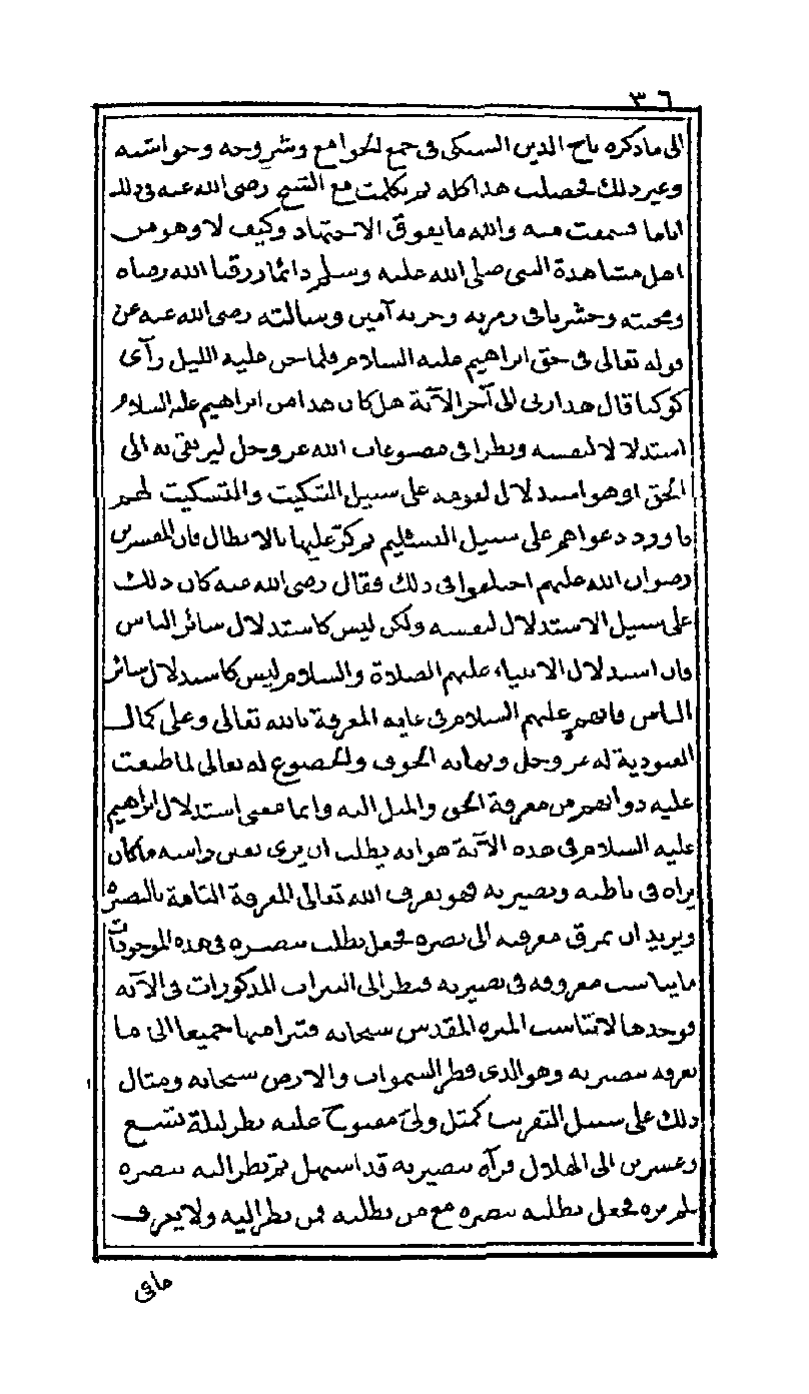 ٣٦
الى ما ذكره تاج الدين السبكى فى جمع الجوامع وشروحه وحواشيه
وغير ذلك فحصلت هذا كله ثم تكلمت مع الشيخ رضى الله عنه فى ذلك
اياما فسمعت منه والله ما يفوق الاجتهاد وكيف لا وهو من
اهل مشاهدة النبى صلى الله عليه وسلم دائما رزقنا الله رضاه
ومحبته وحشرنا فى زمرته وحزبه آمين وسالته رضى الله عنه عن
قوله تعالى فى حق ابراهيم عليه السلام فلما جن عليه الليل رآى
كوكبا قال هذا ربى الى آخر الآية هل كان هذا من ابراهيم عليه السلام
استدلالا لنفسه ونظرا فى مصنوعات الله عز وجل ليرتقى به الى
الحق او هو استدلال لقومه على سبيل التبكيت والتسكيت لهم
فاورد دعواهم على سبيل التسليم ثم كر عليها بالابطال فان المفسرين
رضوان الله عليهم اختلفوا فى ذلك فقال رضى الله عنه كان ذلك
على سبيل الاستدلال لنفسه ولكن ليس كاستدلال سائر الناس
فان استدلال الانبياء عليهم الصلاة والسلام ليس كاستدلال سائر
الناس فانهم عليهم السلام فى غاية المعرفة بالله تعالى وعلى كمال
العبودية له عز وجل ونهاية الخوف والخضوع له تعالى لما طبعت
عليه ذواتهم من معرفة الحق والميل اليه وانما معنى استدلال ابراهيم
عليه السلام فى هذه الآية هو انه يطلب ان يرى بعين راسه ما كان
يراه فى باطنه وبصيرته فهو يعرف الله تعالى المعرفة التامة بالبصيرة
ويريد ان تمرق معرفته الى بصره فجعل يطلب ببصره فى هذه الموجودات
ما يناسب معروفه فى بصيرته فنظر الى النيرات المذكورات فى الآية
فوجدها لا تناسب المنزه المقدس سبحانه فتبرا منها جميعا الى ما
يعرفه ببصيرته وهو الذى فطر السموات والارض سبحانه ومثال
ذلك على سبيل التقريب كمثل ولىّ مفتوح عليه نظر ليلة تسع
وعشرين الى الهلال فرآه ببصيرته قد استهل ثم نظر اليه ببصره
فلم يره فجعل يطلبه ببصره مع من يطلبه فمن نظر اليه ولا يعرف
ما فى